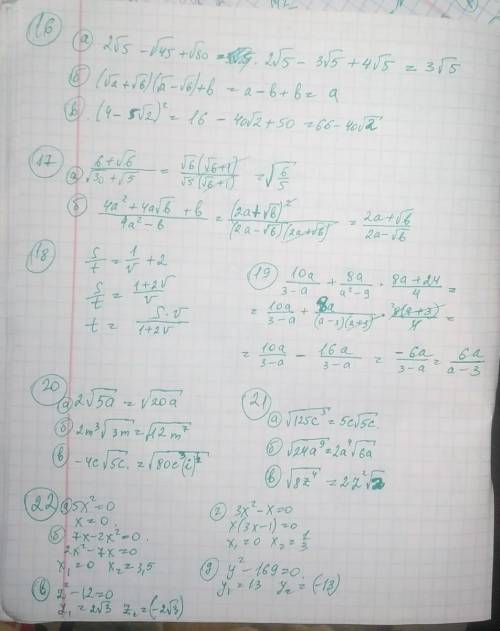 16 а) 2√5 - √45 + √80 = 2√5 - 3√5 + 4√5 = 3√5
б) (√a + √b)(√a - √b) + b = a - b + b = a
в) (4 - 5√2)² = 16 - 40√2 + 50 = 66 - 40√2
17 а) (6 + √6)/(√30 + √5) = √6(√6 + 1)/√5(√6 + 1) = √(6/5)
б) (4a² + 4a√b + b)/(4a² - b) = (2a + √b)²/(2a - √b)(2a + √b) = (2a + √b)/(2a - √b)
18 s/t = 1/v + 2
s/t = (1 + 2v)/v
t = s·v/(1 + 2v)
19 10a/(3 - a) + 8a/(a² - 9) · (8a + 24)/4 =
= 10a/(3 - a) + 8a/(a - 3)(a + 3) · 8(a + 3)/4 =
= 10a/(3 - a) - 16a/(3 - a) = -6a/(3 - a) = 6a/(a - 3)
20 а) 2√5a = √20a
б) 2m³√3m = √12m⁷
в) -4c√5c =
21 а) √125c³ = 5c√5c
б) √24a⁹ = 2a⁴√6a
в) √8z⁴ = 2z²√2
22 а) 5x² = 0
x = 0
б) 7x - 2x² = 0
2x² - 7x = 0
x₁ = 0 x₂ = 3,5
в) z² - 12 = 0
z₁ = 2√3 z₂ = (-2√3)
г) 3x² - x = 0
x(3x - 1) = 0
x₁ = 0 x₂ = 1/3
д) y² - 169 = 0
y₁ = 13 y₂ = (-13)